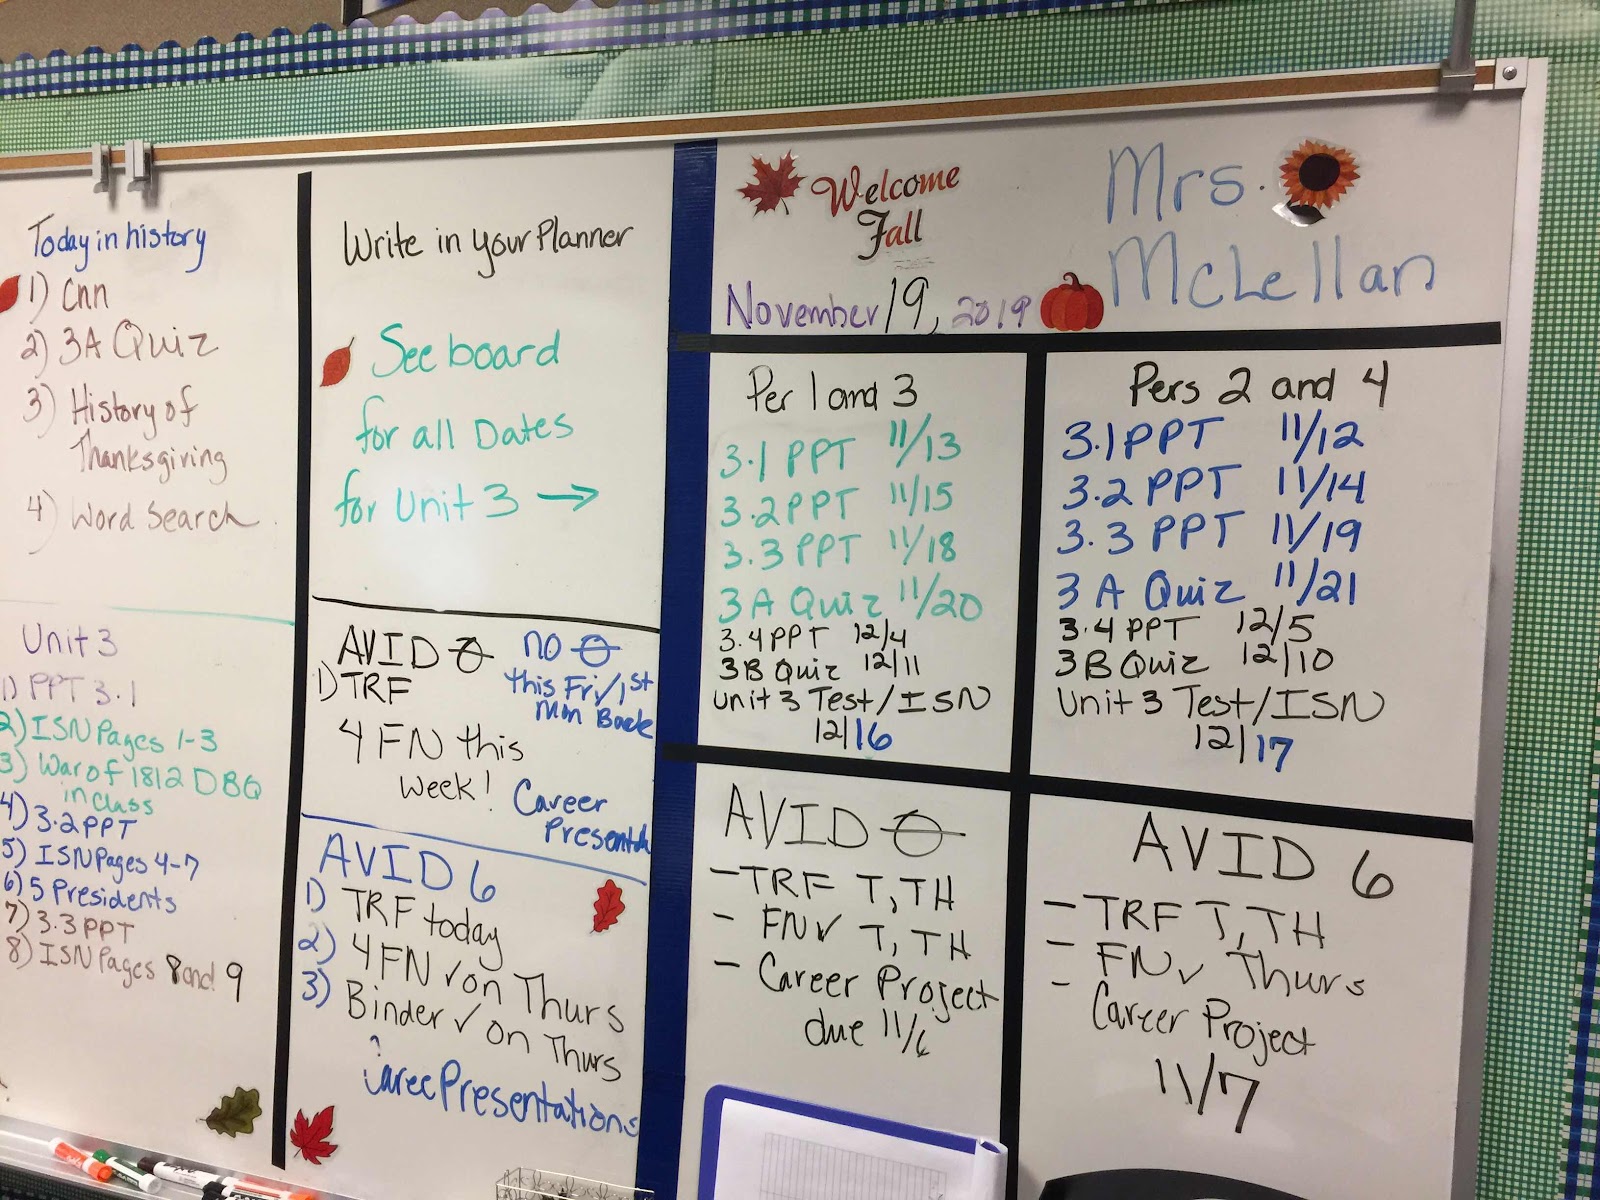 Today in history
1) Cnn
2) 3A Quiz
3) History of
Thanksgiving
4) Word Search
Unit 3
1) PPT 3.1
2) ISN Pages 1-3
3) War of 1812 DBQ
in class
4) 3.2 PPT
5) ISN Pages 4-7
6) 5 Presidents
7) 3.3 PPT
8) ISN Pages 8 and 9
Write in your Planner
See board
for all Dates
for Unit 3 →
AVID 0 no 0
this Fri/1st
Mon Back
1) TRF
4 FN this
week!
Career
Presentatn
AVID 6
1) TRF today
2) 4 FN ✓ on Thurs
3) Binder ✓ on Thurs
Presentations
Welcome
Fall
Mrs.
McLellan
November 19, 2019
Per 1 and 3
3.1 PPT 11/13
3.2 PPT 11/15
3.3 PPT 11/18
3A Quiz 11/20
3.4 PPT 12/4
3B Quiz 12/11
Unit 3 Test/ISN
12/16
Pers 2 and 4
3.1 PPT 11/12
3.2 PPT 11/14
3.3 PPT 11/19
3A Quiz 11/21
3.4 PPT 12/5
3B Quiz 12/10
Unit 3 Test/ISN
12/17
AVID 0
- TRF T, TH
- FN ✓ T, TH
- Career Project
due 11/6
AVID 6
- TRF T, TH
- FN ✓ Thurs
- Career Project
11/7